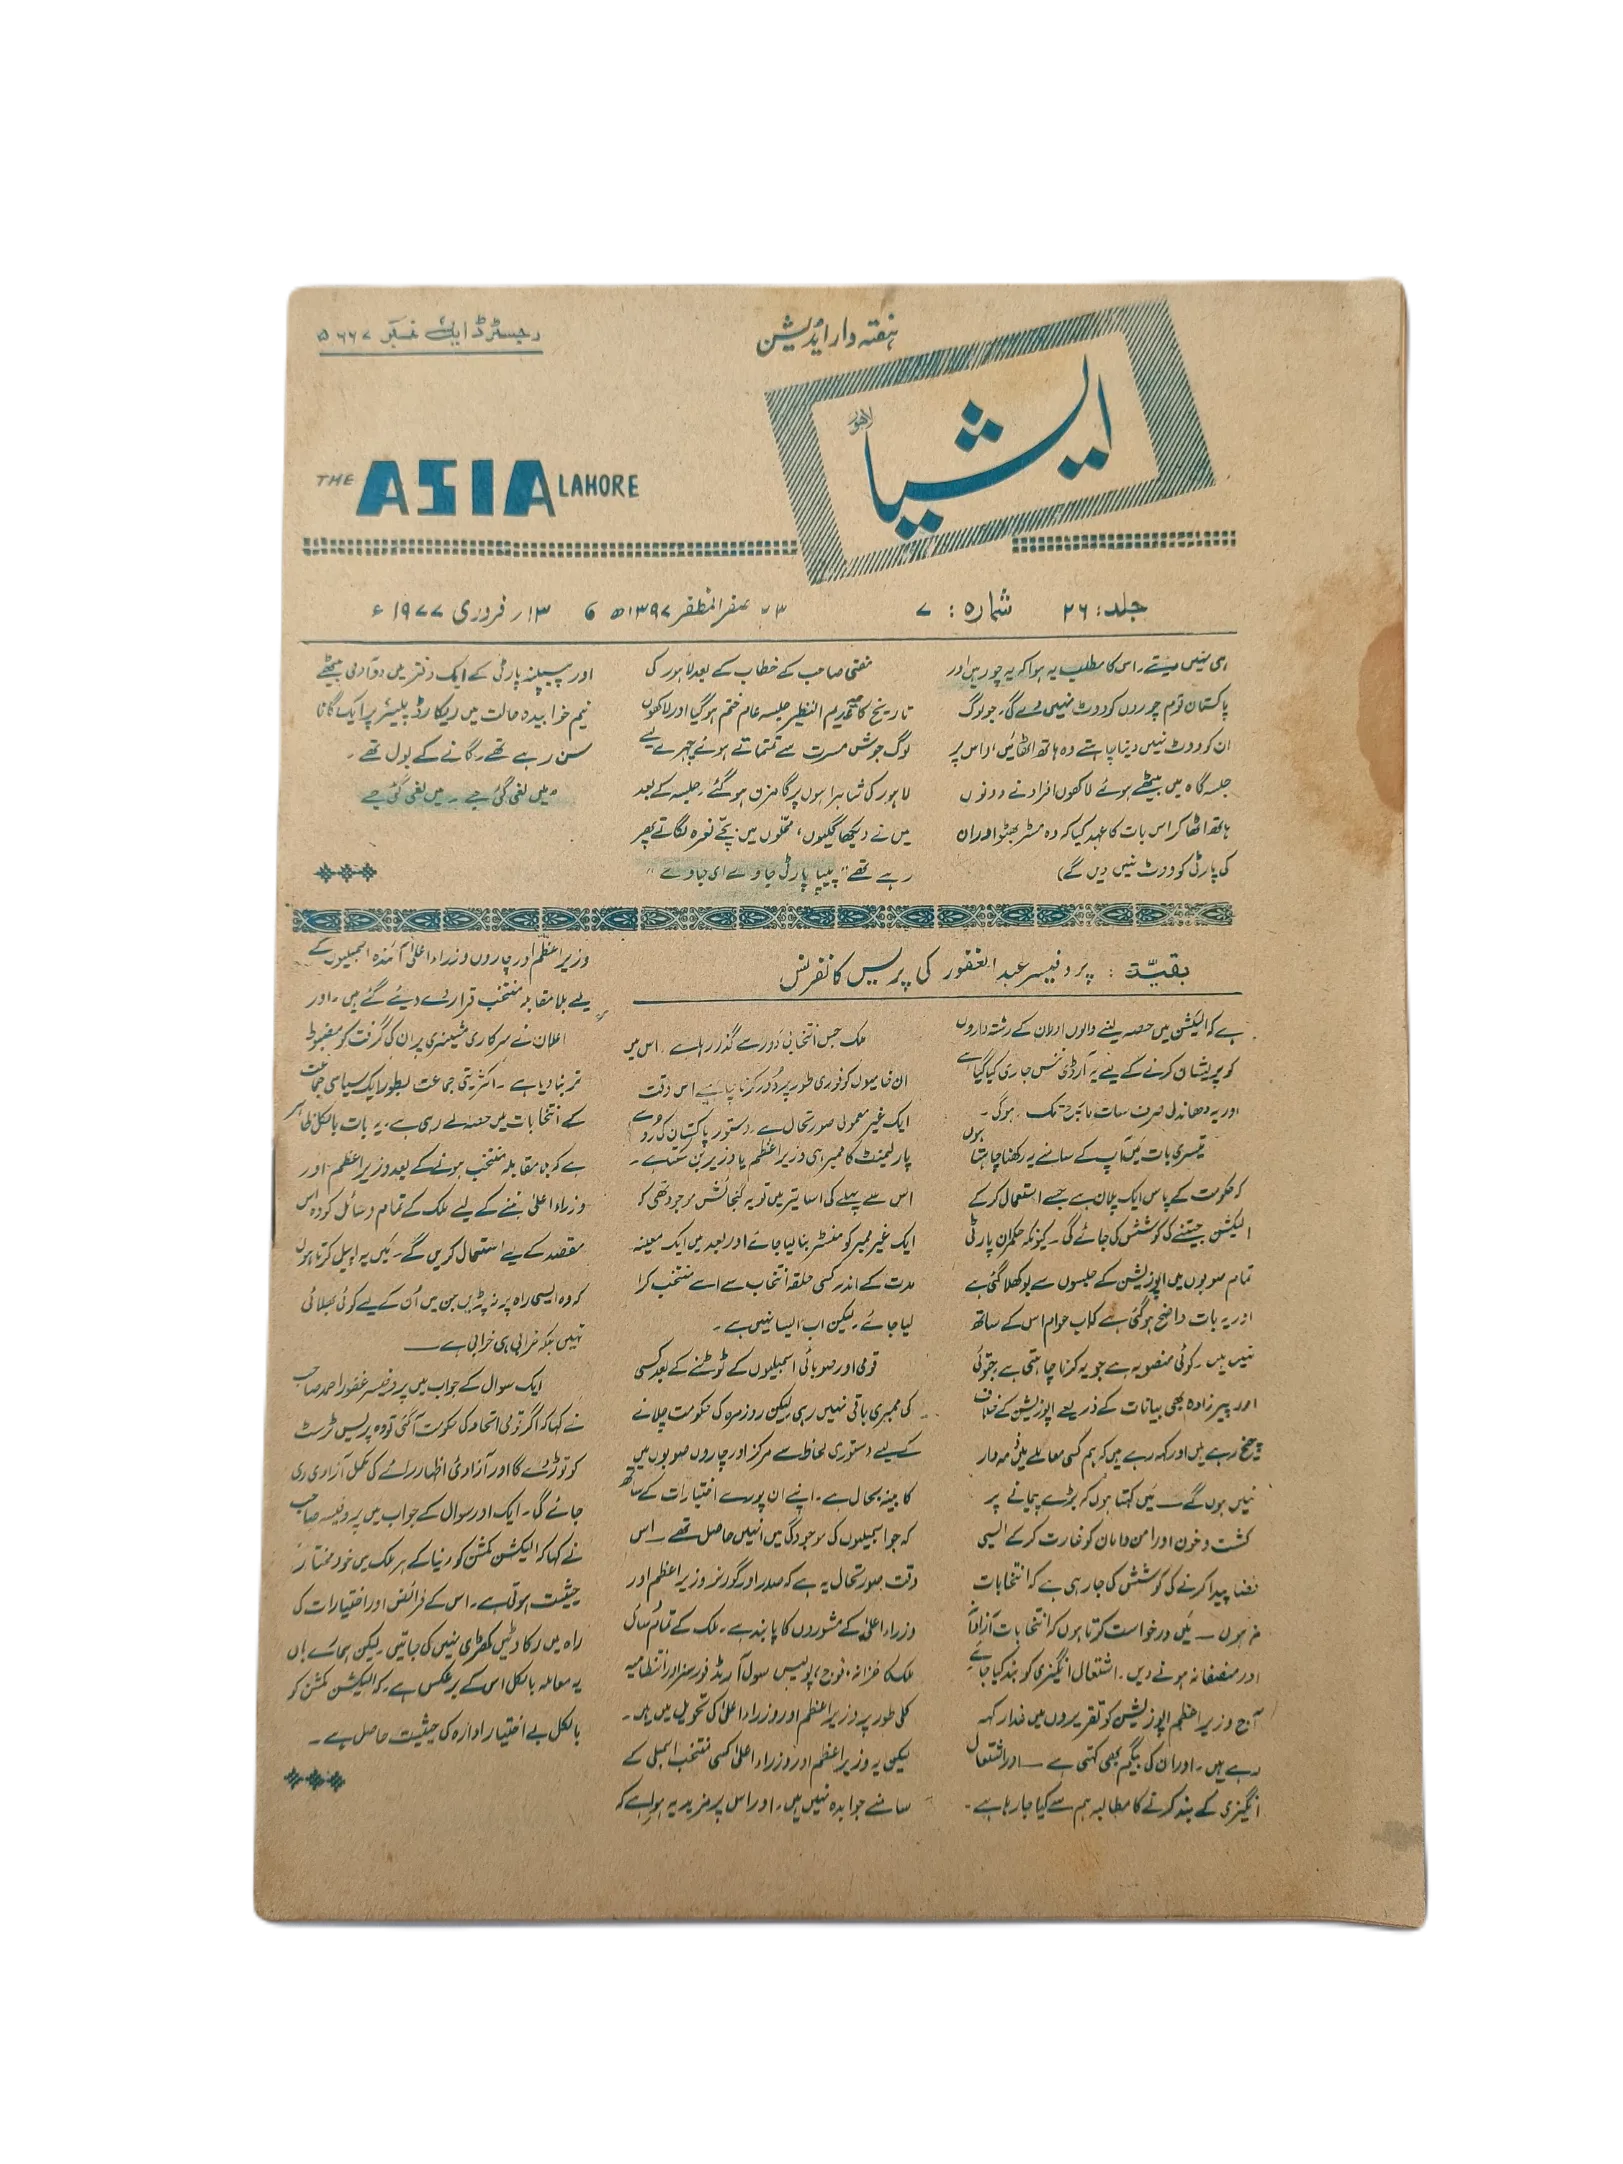 رجسٹرڈ ایل نمبر ۵۶۶۷
ہفتہ وار ایڈیشن
ایشیا
لاہور
THE ASIA LAHORE
جلد: ۲۶ شمارہ: ۷ ۲۳ صفر المظفر ۱۳۹۷ھ ۱۳ر فروری ۱۹۷۷ء
ہی نہیں دیتے۔ اس کا مطلب یہ ہوا کہ یہ چور ہیں اور
پاکستان قوم چوروں کو ووٹ نہیں دے گی۔ جو لوگ
ان کو ووٹ نہیں دینا چاہتے وہ ہاتھ اٹھائیں، اس پر
جلسہ گاہ میں بیٹھے ہوئے لاکھوں افراد نے دونوں
ہاتھ اٹھا کر اس بات کا عہد کیا کہ وہ مسٹر بھٹو اور ان
کی پارٹی کو ووٹ نہیں دیں گے)
مفتی صاحب کے خطاب کے بعد لاہور کی
تاریخ کا عدیم النظیر جلسہ عام ختم ہو گیا اور لاکھوں
لوگ جوش مسرت سے تمتماتے ہوئے چہرے لیے
لاہور کی شاہراہوں پر گامزن ہو گئے۔ جلسہ کے بعد
میں نے دیکھا گلیوں، محلوں میں بچے نعرہ لگاتے پھر
رہے تھے "پیپا پارٹی جاوے ای جاوے"
اور پیپلز پارٹی کے ایک دفتر میں دو آدمی بیٹھے
نیم خوابیدہ حالت میں ریکارڈ پلیئر پر ایک گانا
سن رہے تھے۔ گانے کے بول تھے۔
"میں لٹی گئی جے ۔ میں لٹی گئی جے
بقیہ : پروفیسر عبدالغفور کی پریس کانفرنس
ہے کہ الیکشن میں حصہ لینے والوں اور ان کے رشتہ داروں
کو پریشان کرنے کے لیے یہ آرڈی ننس جاری کیا گیا ہے
اور یہ دھاندلی صرف سات مارچ تک ہو گی۔
تیسری بات میں آپ کے سامنے یہ رکھنا چاہتا ہوں
کہ حکومت کے پاس ایک پلان ہے جسے استعمال کر کے
الیکشن جیتنے کی کوشش کی جائے گی۔ کیونکہ حکمران پارٹی
تمام صوبوں میں اپوزیشن کے جلسوں سے بوکھلا گئی ہے
اور یہ بات واضح ہو گئی ہے کہ اب عوام اس کے ساتھ
نہیں ہیں۔ کوئی منصوبہ ہے جو یہ کرنا چاہتی ہے جتوئی
اور پیرزادہ بھی بیانات کے ذریعے اپوزیشن کے خلاف
چیخ رہے ہیں اور کہہ رہے ہیں کہ ہم کسی معاملے میں ذمہ دار
نہیں ہوں گے — میں کہتا ہوں کہ بڑے پیمانے پر
کشت و خون اور امن و امان کو غارت کر کے ایسی
فضا پیدا کرنے کی کوشش کی جا رہی ہے کہ انتخابات
نہ ہوں — میں درخواست کرتا ہوں کہ انتخابات آزادانہ
اور منصفانہ ہونے دیں۔ اشتعال انگیزی کو بند کیا جائے
آج وزیر اعظم اپوزیشن کو تقریروں میں غدار کہہ
رہے ہیں۔ اور ان کی بیگم بھی کہتی ہے — اور اشتعال
انگیزی کے بند کرنے کا مطالبہ ہم سے کیا جا رہا ہے۔
ملک جس انتخابی دور سے گذر رہا ہے۔ اس میں
ان خامیوں کو فوری طور پر دور کرنا چاہئیے اس وقت
ایک غیر معمولی صورتحال ہے۔ دستور پاکستان کی رو سے
پارلیمنٹ کا ممبر ہی وزیر اعظم یا وزیر بن سکتا ہے۔
اس سے پہلے کی اساتیر میں تو یہ گنجائش موجود تھی کہ
ایک غیر ممبر کو منسٹر بنا لیا جائے اور بعد میں ایک معینہ
مدت کے اندر کسی حلقہ انتخاب سے اسے منتخب کرا
لیا جائے۔ لیکن اب ایسا نہیں ہے۔
قومی اور صوبائی اسمبلیوں کے ٹوٹنے کے بعد کسی
کی ممبری باقی نہیں رہی لیکن روزمرہ کی حکومت چلانے
کے لیے دستوری لحاظ سے مرکز اور چاروں صوبوں میں
کابینہ بحال ہے۔ اپنے ان پورے اختیارات کے ساتھ
کہ جو اسمبلیوں کی موجودگی میں انہیں حاصل تھے۔ اس
وقت صورتحال یہ ہے کہ صدر اور گورنر وزیر اعظم اور
وزراء اعلیٰ کے مشوروں کا پابند ہے۔ ملک کے تمام وسائل
ملک کا خزانہ، فوج، پولیس سول آرمڈ فورسز اور انتظامیہ
کلی طور پر وزیر اعظم اور وزراء اعلیٰ کی تحویل میں ہیں۔
لیکن یہ وزیر اعظم اور وزراء اعلیٰ کسی منتخب اسمبلی کے
سامنے جوابدہ نہیں ہیں۔ اور اس پر مزید یہ ہوا ہے کہ
وزیر اعظم اور چاروں وزراء اعلیٰ آئندہ اسمبلیوں کے
لیے بلا مقابلہ منتخب قرار دے دیئے گئے ہیں۔ اور
اعلان نے سرکاری مشینری پر ان کی گرفت کو مضبوط
تر بنا دیا ہے۔ اکثریتی جماعت بطور ایک سیاسی جماعت
کے انتخابات میں حصہ لے رہی ہے۔ یہ بات بالکل ظاہر
ہے کہ بلا مقابلہ منتخب ہونے کے بعد وزیر اعظم اور
وزراء اعلیٰ بننے کے لیے ملک کے تمام وسائل کو وہ اس
مقصد کے لیے استعمال کریں گے۔ میں یہ اپیل کرتا ہوں
کہ وہ ایسی راہ پر نہ پڑیں جن میں اُن کے لیے کوئی بھلائی
نہیں بلکہ خرابی ہی خرابی ہے —
ایک سوال کے جواب میں پروفیسر غفور احمد صاحب
نے کہا کہ اگر قومی اتحاد کی حکومت آ گئی تو وہ پریس ٹرسٹ
کو توڑ دے گا اور آزادئ اظہار رائے کی مکمل آزادی دی
جائے گی۔ ایک اور سوال کے جواب میں پروفیسر صاحب
نے کہا کہ الیکشن کمشن کو دنیا کے ہر ملک میں خود مختار
حیثیت ہوتی ہے۔ اس کے فرائض اور اختیارات کی
راہ میں رکاوٹیں کھڑی نہیں کی جاتیں۔ لیکن ہمارے ہاں
یہ معاملہ بالکل اس کے برعکس ہے۔ کہ الیکشن کمشن کو
بالکل بے اختیار ادارہ کی حیثیت حاصل ہے۔